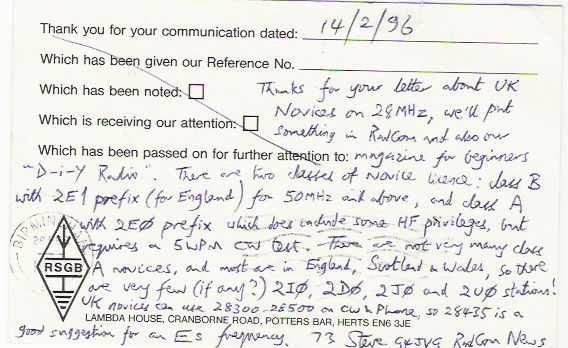 Thank you for your communication dated: 14/2/96
Which has been given our Reference No.
Which has been noted:
Which is receiving our attention:
Which has been passed on for further attention to:
Thanks for your letter about UK
Novices on 28MHz, we'll print
something in RadCom and also our
magazine for beginners
"D-i-Y Radio". There are two classes of novice licence: class B
with 2E1 prefix (for England) for 50MHz and above, and class A
with 2EØ prefix which does include some HF privileges, but
requires a 5WPM CW test. There are not very many class
A novices, and most are in England, Scotland & Wales, so there
are very few (if any?) 2IØ, 2DØ, 2JØ and 2UØ stations!
UK novices can use 28300-28500 on CW & Phone, so 28435 is a
good suggestion for an Es frequency. 73 Steve G4JVG RadCom News
BIRMING
RSGB
LAMBDA HOUSE, CRANBORNE ROAD, POTTERS BAR, HERTS EN6 3JE